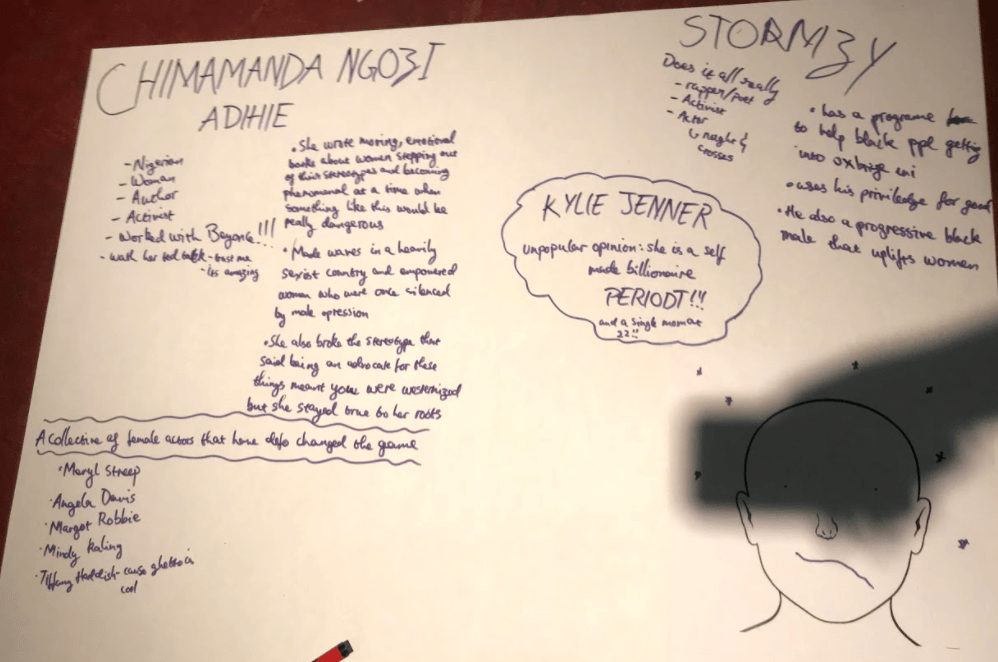 CHIMAMANDA NGOZI
ADIHIE
- Nigerian
- Woman
- Author
- Activist
- Worked with Beyonce!!!
- watch her ted talk - trust me
- its amazing
• She wrote moving, emotional
books about women stepping out
of their stereotypes and becoming
phenomenal at a time when
something like this would be
really dangerous
• Made waves in a heavily
sexist country and empowered
women who were once silenced
by male opression
• She also broke the stereotype that
said being an advocate for these
things meant you were westernized
but she stayed true to her roots
A collective of female actors that have defo changed the game
• Meryl Streep
• Angela Davis
• Margot Robbie
• Mindy Kaling
• Tiffany Haddish - cause ghetto is
cool
KYLIE JENNER
unpopular opinion: she is a self
made billionaire
PERIODT!!!
and a single mom at
22!!
STORMZY
Does it all really
- rapper/poet
- Activist
- Actor
↳ naught &
crosses
• has a programe
to help black ppl getting
into oxbrige uni
• uses his priviledge for good
• He also a progressive black
male that uplifts women